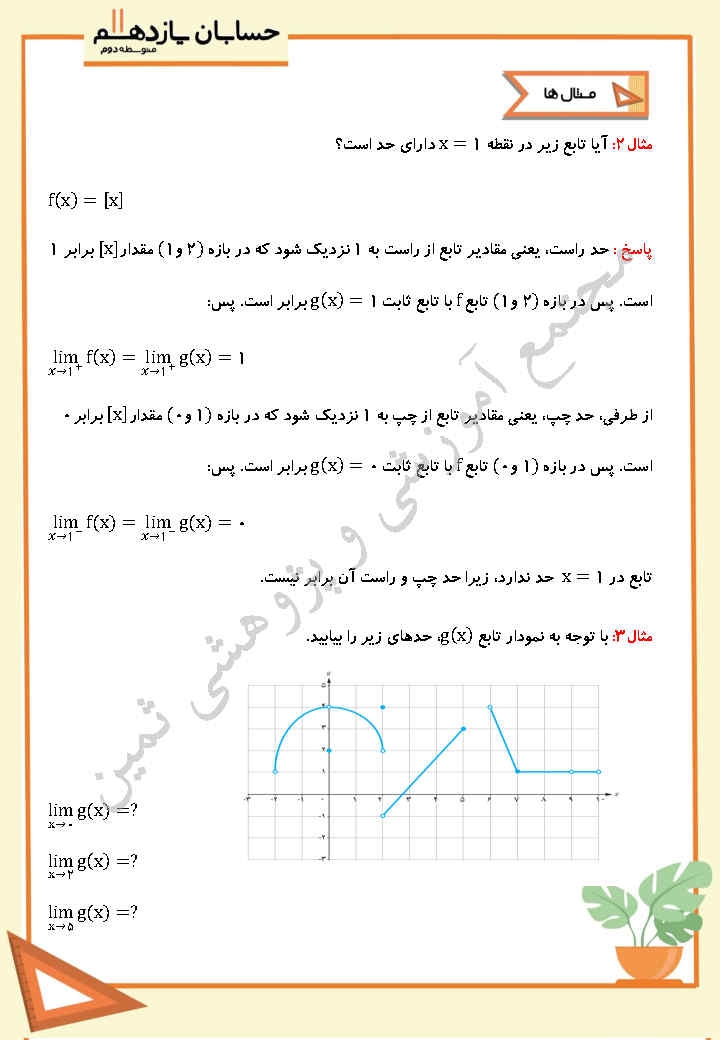 حسابان یازدهم
متوسطه دوم
مثال ها
مثال ۲: آیا تابع زیر در نقطه x = ۱ دارای حد است؟
f(x) = [x]
پاسخ : حد راست، یعنی مقادیر تابع از راست به ۱ نزدیک شود که در بازه (۲ و۱) مقدار[x] برابر ۱
است. پس در بازه (۲ و۱) تابع f با تابع ثابت g(x) = ۱ برابر است. پس:
lim f(x) = lim g(x) = ۱
x→۱⁺ x→۱⁺
از طرفی، حد چپ، یعنی مقادیر تابع از چپ به ۱ نزدیک شود که در بازه (۱ و۰) مقدار[x] برابر ۰
است. پس در بازه (۱ و۰) تابع f با تابع ثابت g(x) = ۰ برابر است. پس:
lim f(x) = lim g(x) = ۰
x→۱⁻ x→۱⁻
تابع در x = ۱ حد ندارد، زیرا حد چپ و راست آن برابر نیست.
مثال۳: با توجه به نمودار تابع g(x)، حدهای زیر را بیابید.
y
۵
۴
۳
۲
۱
-۳ -۲ -۱ ۰ ۱ ۲ ۳ ۴ ۵ ۶ ۷ ۸ ۹ ۱۰ x
-۱
-۲
-۳
lim g(x) =?
x→۰
lim g(x) =?
x→۲
lim g(x) =?
x→۵
مجتمع آموزشی و پژوهشی ثمین